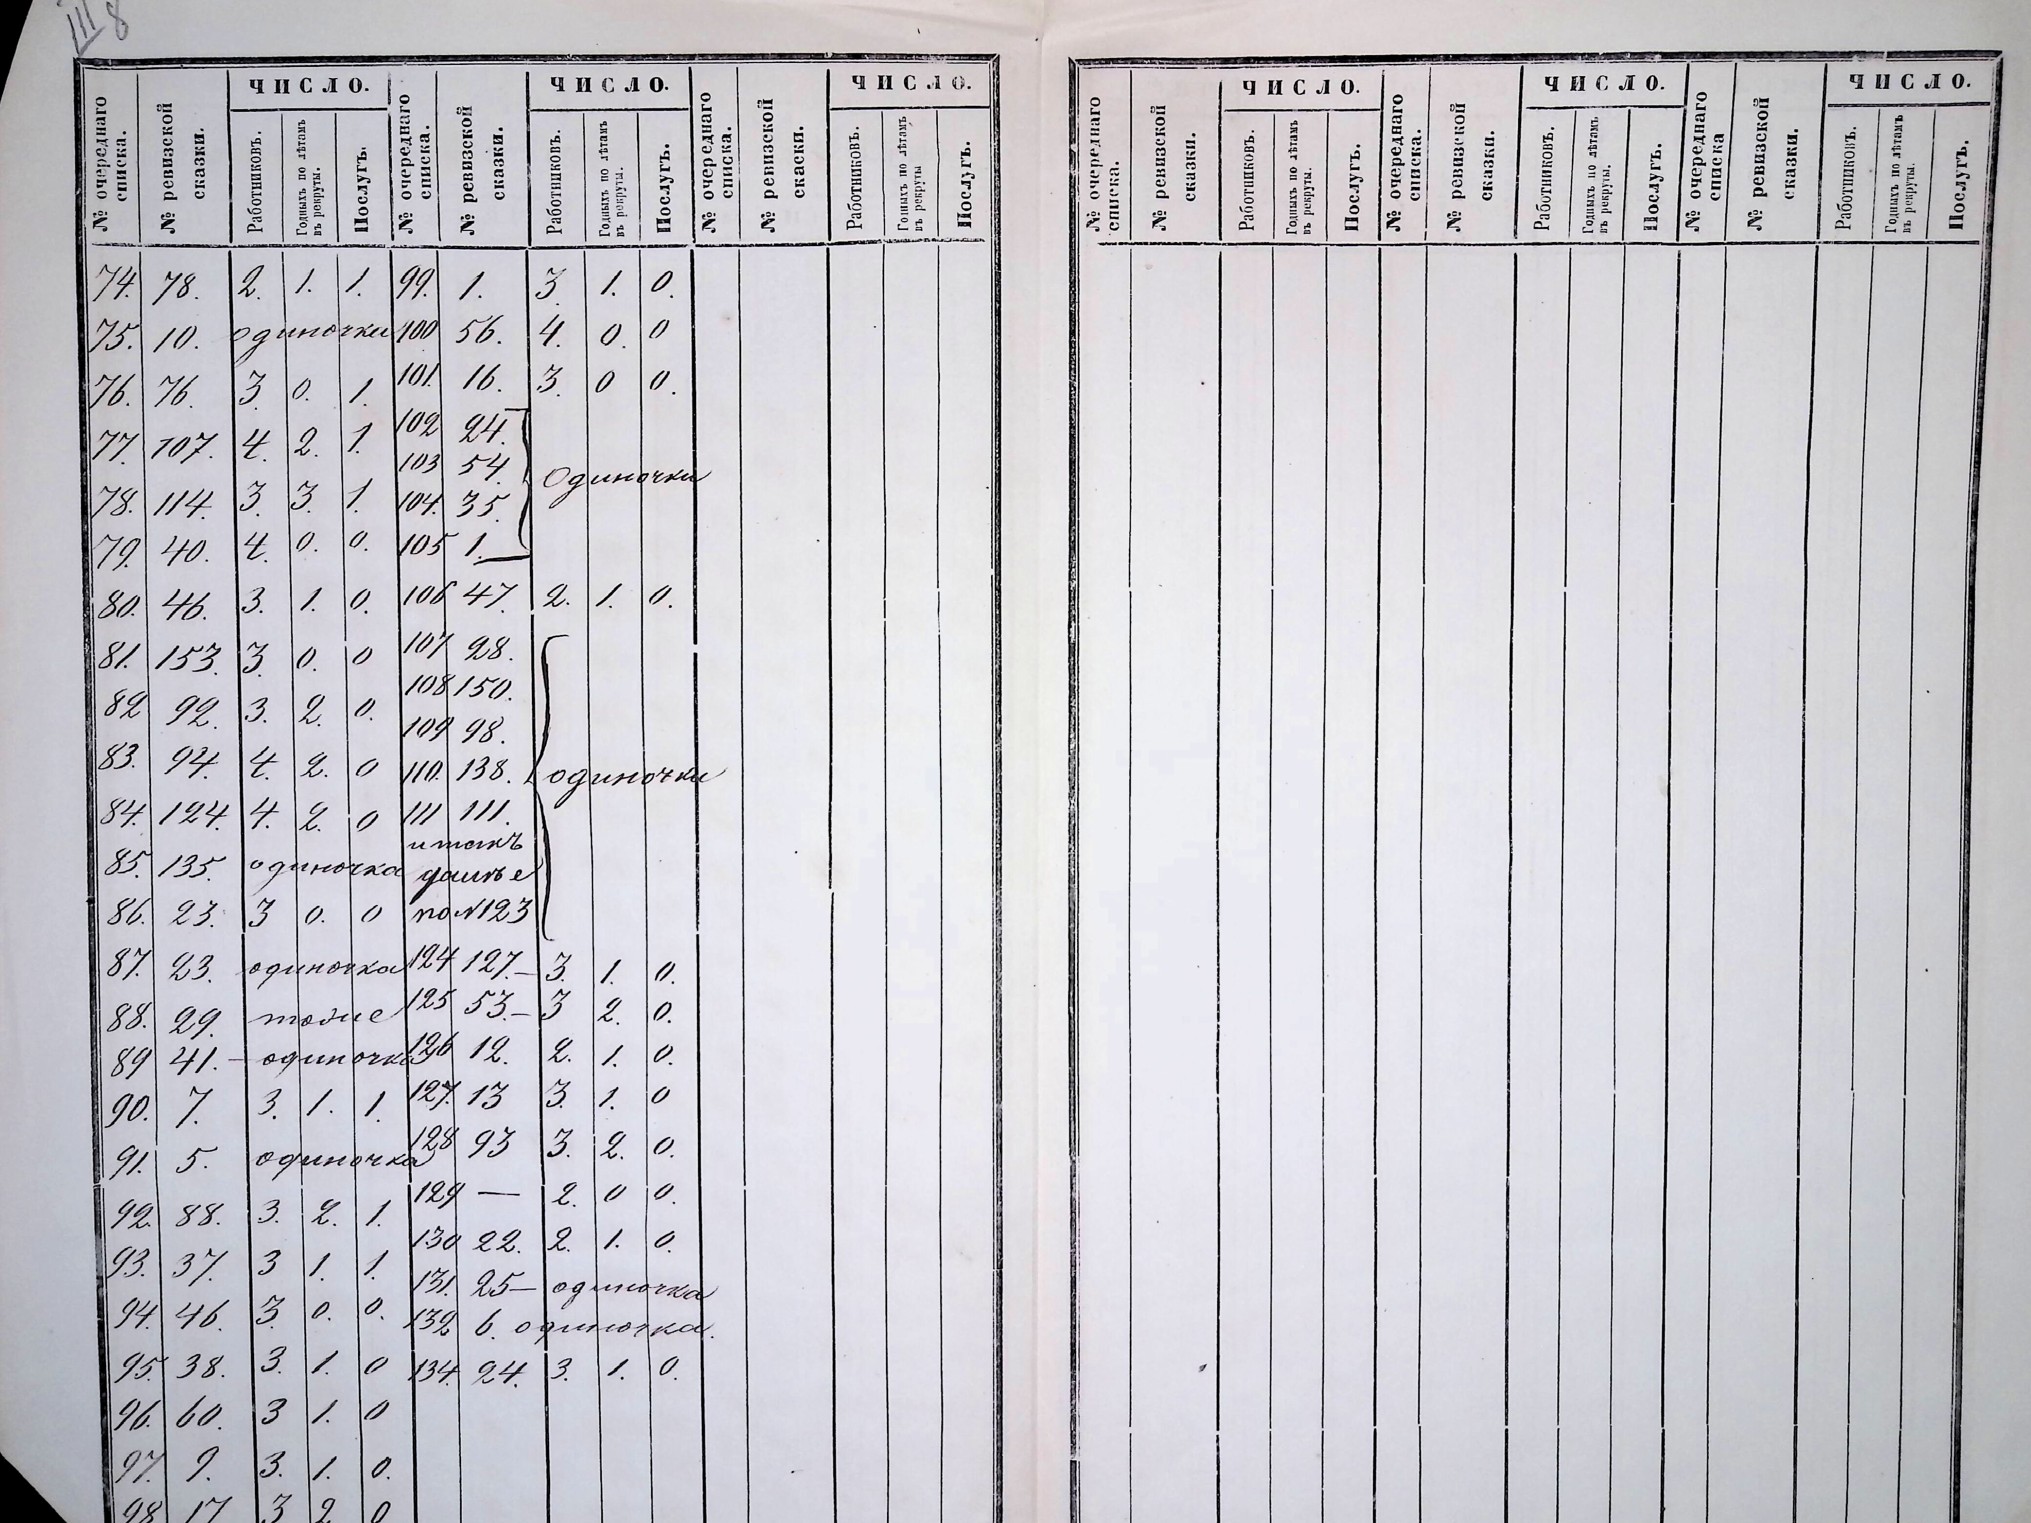 III 8
№ очереднаго списка. № ревизской сказки. ЧИСЛО. Работниковъ. Годныхъ по лѣтамъ въ рекруты. Послугъ. № очереднаго списка. № ревизской сказки. ЧИСЛО. Работниковъ. Годныхъ по лѣтамъ въ рекруты. Послугъ. № очереднаго списка. № ревизской скаски. ЧИСЛО. Работниковъ. Годныхъ по лѣтамъ въ рекруты Послугъ.
74. 78. 2. 1. 1. 99. 1. 3. 1. 0.
75. 10. одиночки 100 56. 4. 0. 0
76. 76. 3. 0. 1. 101. 16. 3. 0 0.
77. 107. 4. 2. 1. 102 24.
103 54. Одиночки
78. 114. 3. 3. 1. 104. 35.
79. 40. 4. 0. 0. 105 1.
80. 46. 3. 1. 0. 106 47. 2. 1. 0.
81. 153. 3. 0. 0 107 28.
108 150.
82 92. 3. 2. 0. 109 98.
83. 94. 4. 2. 0 110. 138. одиночки
84. 124. 4. 2. 0 111 111.
и такъ
85. 135. одиночка далѣе
86. 23. 3 0. 0 по №123
87. 23. одиночка 124 127.– 3. 1. 0.
88. 29. тоже 125 53.– 3 2. 0.
89 41.– одиночка 126 12. 2. 1. 0.
90. 7. 3. 1. 1. 127. 13 3. 1. 0
91. 5. одиночка 128 93 3. 2. 0.
92. 88. 3. 2. 1. 129 — 2. 0 0.
93. 37. 3 1. 1. 130 22. 2. 1. 0.
131. 25– одиночка
94. 46. 3. 0. 0. 132 6. одиночка.
95. 38. 3. 1. 0 134. 24. 3. 1. 0.
96. 60. 3 1. 0
97. 9. 3. 1. 0.
98 17 3 2 0
№ очереднаго списка. № ревизской сказки. ЧИСЛО. Работниковъ. Годныхъ по лѣтамъ въ рекруты. Послугъ. № очереднаго списка. № ревизской сказки. ЧИСЛО. Работниковъ. Годныхъ по лѣтамъ въ рекруты. Послугъ. № очереднаго списка № ревизской сказки. ЧИСЛО. Работниковъ. Годныхъ по лѣтамъ въ рекруты. Послугъ.